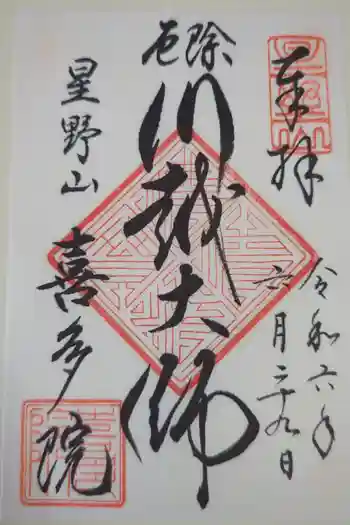 奉拝
令和六年
六月二十九日
厄除
川越大師
星野山
喜多院